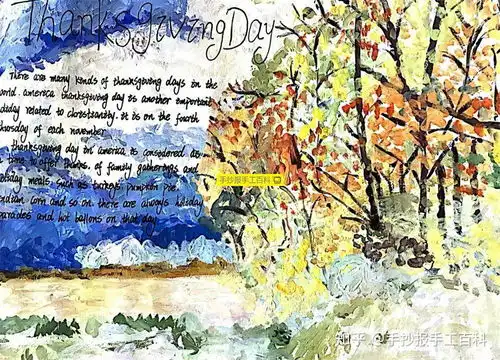 Thanksgiving Day
There are many kinds of thanksgiving days in the
world. america thanksgiving day is another important
holiday related to christianity. it is on the fourth
thursday of each november
thanksgiving day in america is considered as
a time to offer thanks, of family gatherings and
holiday meals. such as turkeys. pumpkin pie.
indian corn and so on. there are always holiday
parades and hot ballons on that day
手抄报手工百科
知乎 @手抄报手工百科